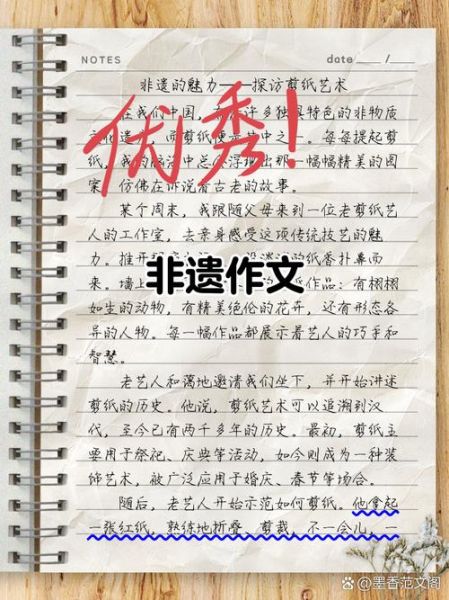 NOTES
date ___ /___
非遗的魅力——探访剪纸艺术
在我们中国,有许多独具特色的非物质
文化遗产,而剪纸便是其中之一。每每提起剪
纸,我的脑海中总会浮现出那一幅幅精美的图
案,仿佛在诉说着古老的故事。
优秀!
某个周末,我跟随父母来到一位老剪纸艺
人的工作室,去亲身感受这项传统技艺的魅
力。推开 纸香扑鼻而
来。墙上 作品:有栩栩
非遗作文
如生的动物,有精美绝伦的花卉,还有形态各
异的人物。每一幅作品都展示着艺人的巧手和
智慧。
老艺人和蔼地邀请我们坐下,并开始讲述
剪纸的历史。他说,剪纸艺术可以追溯到汉
代,至今已有两千多年的历史。最初,剪纸主
要用于祭祀、庆典等活动,如今则成为一种装
饰艺术,被广泛应用于婚庆、春节等场合。
随后,老艺人开始示范如何剪纸。他拿起
一张红纸,熟练地折叠、剪裁,不一会儿,一
@墨香范文阁